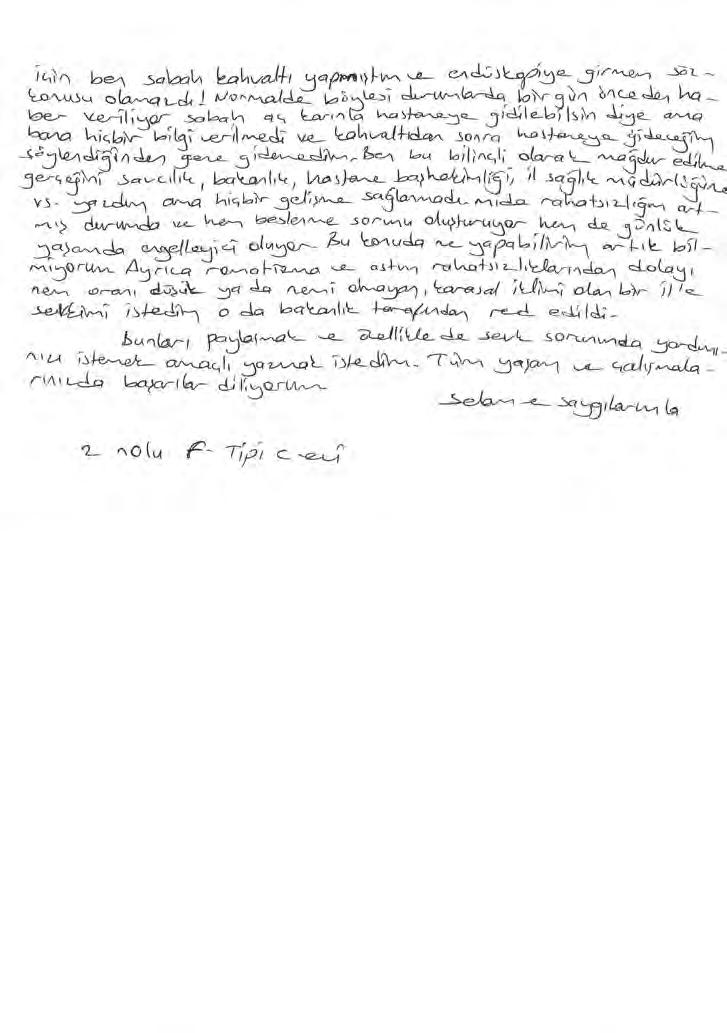 için ben sabah kahvaltı yapmıştım ve endüskopiye girmem söz-
konusu olamazdı! Normalde böylesi durumlarda bir gün önceden ha-
ber veriliyor sabah aç karınla hastaneye gidilebilsin diye ama
bana hiçbir bilgi verilmedi ve kahvaltıdan sonra hastaneye gideceğim
söylendiğinden gene gidemedim. Ben bu bilinçli olarak mağdur edilme
gerçeğini savcılık, bakanlık, hastane başhekimliği, il sağlık müdürlüğüne
vs. yazdım ama hiçbir gelişme sağlanmadı mida rahatsızlığım art-
mış durumda ve hem beslenme sorunu oluşturuyor hem de günlük
yaşamda engelleyici oluyor. Bu konuda ne yapabilirim artık bil-
miyorum Ayrıca romatizma ve astım rahatsızlıklarından dolayı
nem oranı düşük ya da nemi olmayan, karasal iklimi olan bir il'e
sevkimi istedim o da bakanlık tarafından red edildi.
Bunları paylaşmak ve özellikle de sevk sorununda yardımı-
nızı istemek amaçlı yazmak istedim. Tüm yaşam ve çalışmala-
rınızda başarılar diliyorum
Selam ve saygılarımla
2 nolu F-Tipi C.evi